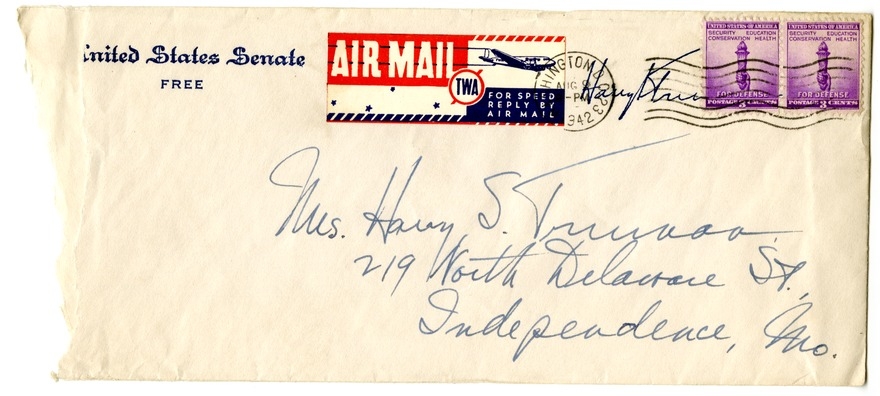 United States Senate
FREE
AIR MAIL
TWA
FOR SPEED
REPLY BY
AIR MAIL
HINGTON
AUG
-PM
1942
Harry S Truman
UNITED STATES OF AMERICA
SECURITY EDUCATION
CONSERVATION HEALTH
FOR DEFENSE
POSTAGE 3 CENTS
UNITED STATES OF AMERICA
SECURITY EDUCATION
CONSERVATION HEALTH
FOR DEFENSE
POSTAGE 3 CENTS
Mrs. Harry S. Truman
219 North Delaware St.,
Independence, Mo.